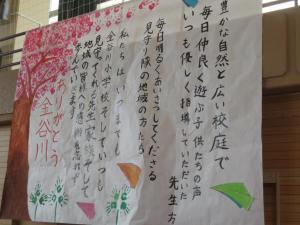 豊かな自然と広い校庭で
毎日仲良く遊ぶ子供たちの声
いつも優しく指導していただいた
先生方
毎日明るくあいさつしてくださる
見守り隊の地域の方たち
私たちはいつまでも
金谷川小学校そしていつも
見守ってくれる先生家族そして
地域の皆様の感謝を忘れず
歩んでいきます
ありがとう
金谷川